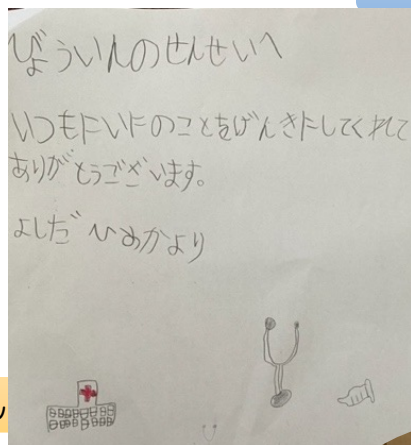 びょういんのせんせいへ
いつもにいにのことをげんきにしてくれて
ありがとうございます。
よしだ ひめかより